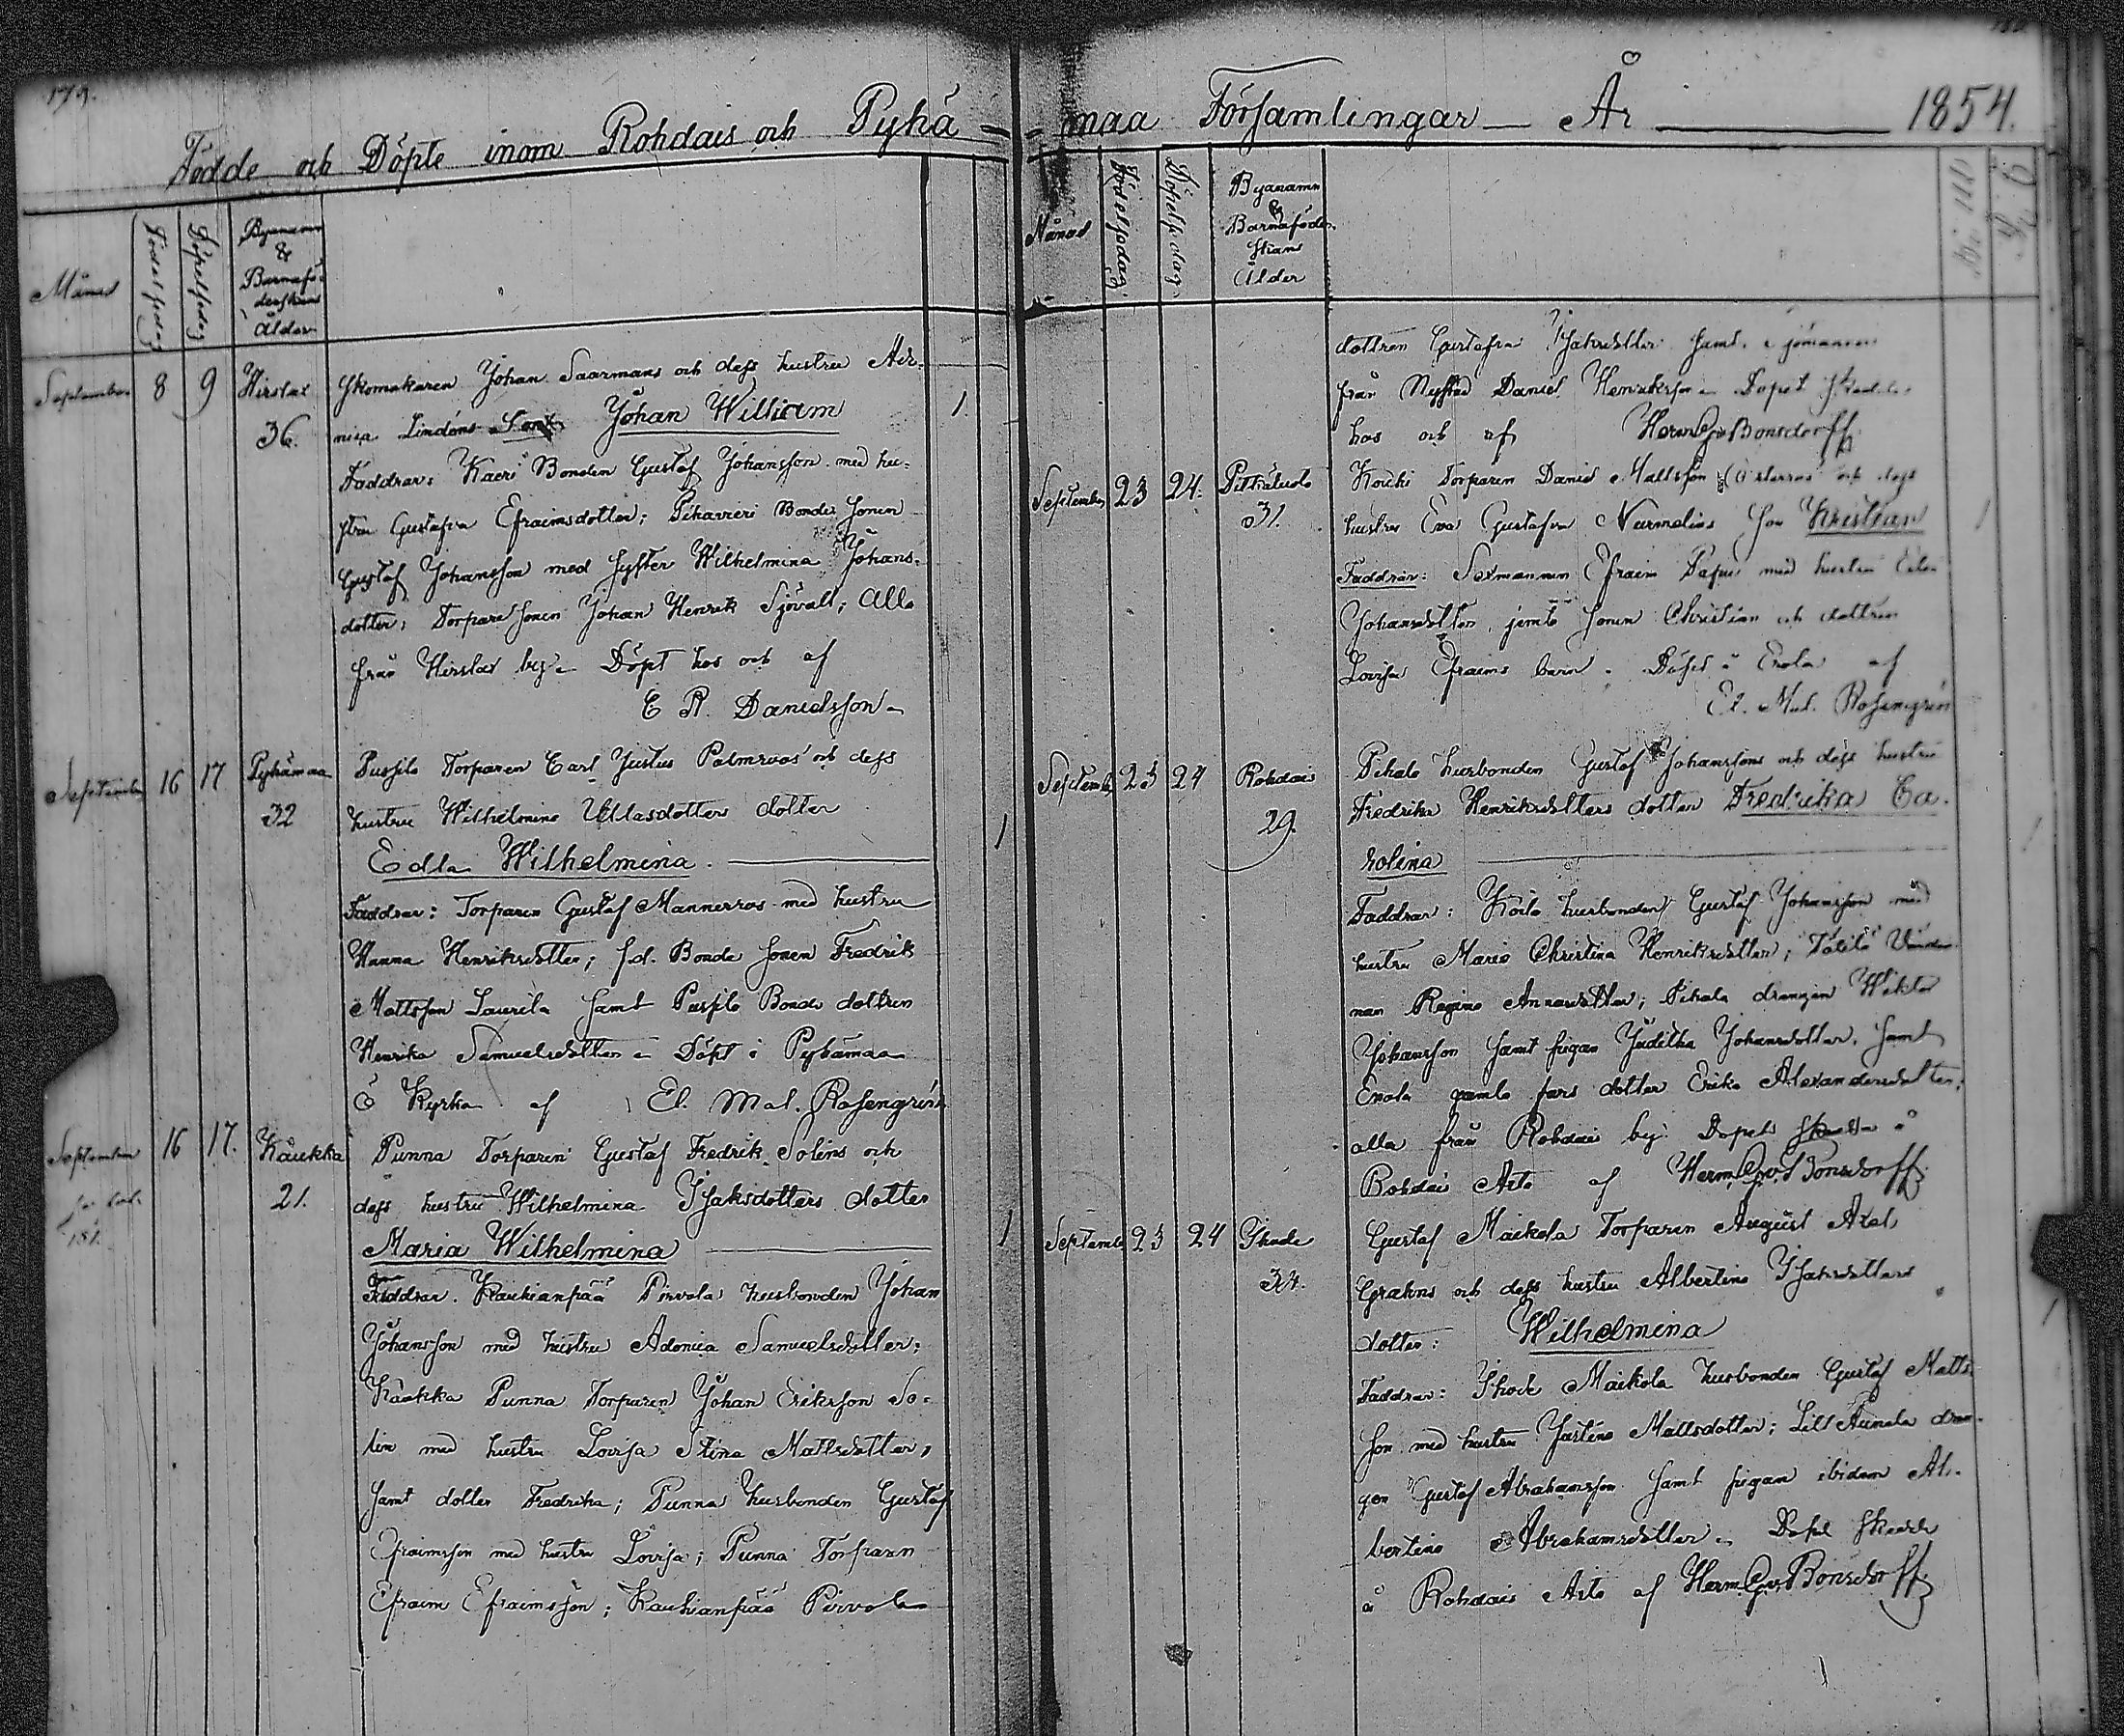 179.
Födde och Döpte inom Rohdais och Pyhä=
Månad Födelsedag Döpelsedag Byanamn & Barnaföderskans Ålder
September 8 9 Hirslax Skomakaren Johan Saarmans och dess hustru He=
36. Lindéns Son Johan William 1.
Faddrar: Kaeri Bonden Gustaf Johansson med hu=
stru Gustafva Efraimsdotter; Pihavieri Bonde Sonen
Gustaf Johansson med Syster Wilhelmina Johans=
dotter; Torpare Sonen Johan Henrik Sjövall; Alla
från Hirslax by Döpt hos och af
E R. Danielsson
September 16 17 Pyhämaa Pussila Torparen Carl Justus Palmroos och dess
32 hustru Wilhelmina Ullasdotters dotter
Edla Wilhelmina 1
Faddrar: Torparen Gustaf Mannerroos med hustru
Hanna Henriksdotter; f.d. Bonde Sonen Fredrik
Mattsson Laurila samt Pussila Bonde dottren
Henrika Samuelsdotter Döpt i Pyhämaa
Ö Kyrka af El. Mal. Rosengrén
September 16 17. Kåukka Punna Torparen Gustaf Fredrik Solins och
21. dess hustru Wilhelmina Isaksdotters dotter
181. Maria Wilhelmina 1
Faddrar. Kauhianpää Pirvola husbonden Johan
Johansson med hustru Adamia Samuelsdotter;
Kåukka Punna Torparen Johan Eriksson So=
lin med hustru Lovisa Stina Mattsdotter,
samt dotter Fredrika; Punna husbonden Gustaf
Efraimsson med hustru Lovisa; Punna Torparen
Efraim Efraimsson; Kauhianpää Pirvola
=maa Församlingar År 1854.
Månad Födelsedag Döpelsedag Byanamn & Barnaföderskans Ålder
dottren Gustafva Isaksdotter samt sjömannen
från Nystad Daniel Henriksson Dopet skedde
hos och af Herm Gv Bonsdorff
September 23 24. Pitkäluoto Koiki Torparen Daniel Mattsson Österroos och dess
31. hustru Eva Gustafva Nurmelins Son Kristian 1
Faddrar: Sexmannen Efraim Papu med hustru
Johansdotter, jemte Sonen Christian och dottren
Lovisa Efraims barn. Döpt i Enola af
El. Mal. Rosengrén
September 23 24 Rohdais Pihala husbonden Gustaf Johanssons och dess hustru
29. Fredrika Henriksdotters dotter Fredrika Ca=
rolina 1
Faddrar: Koilo husbonden Gustaf Johansson med
hustru Maria Christina Henriksdotter; Tålilä
nan Regina Annasdotter; Pihala drängen Wiktor
Johansson samt pigan Juditha Johansdotter, samt
Enola gamla fars dotter Erika Alexandersdotter;
alla från Rohdais by. Dopet skedde å
Rohdais Arto af Herm Gv Bonsdorff
September 23 24 Ihode Gustaf Maikola Torparen August Axel
34. Grahns och dess hustru Albertina Isaksdotters
dotter: Wilhelmina 1
Faddrar: Ihode Maikola husbonden Gustaf Matts=
son med hustru Justina Mattsdotter; Lill Aunela drän=
gen Gustaf Abrahamsson samt pigan ibidem Al=
bertina Abrahamsdotter. Dopet skedde
å Rohdais Arto af Herm Gv Bonsdorff